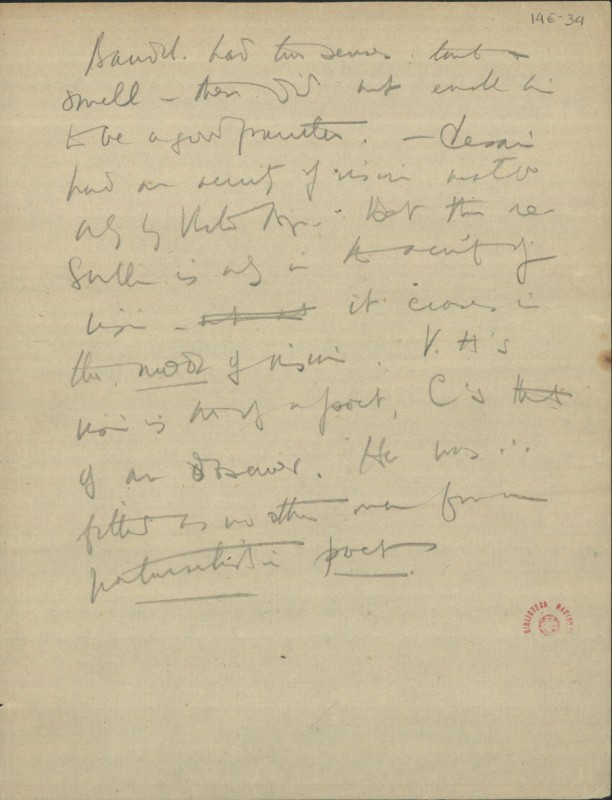 14E-34
Baudel. had two senses: touch &
smell — these did not enable him
to be a good painter. — Cesario
had an acuity of vision
only by Victor Hugo. But the re-
is only in the acuity of
vision — it ceases in
the mode of vision. V. H's
vision is that of a poet, C's
of an observer. He was
fitted as no other man for a
naturalistic poet.
BIBLIOTECA NACIONAL